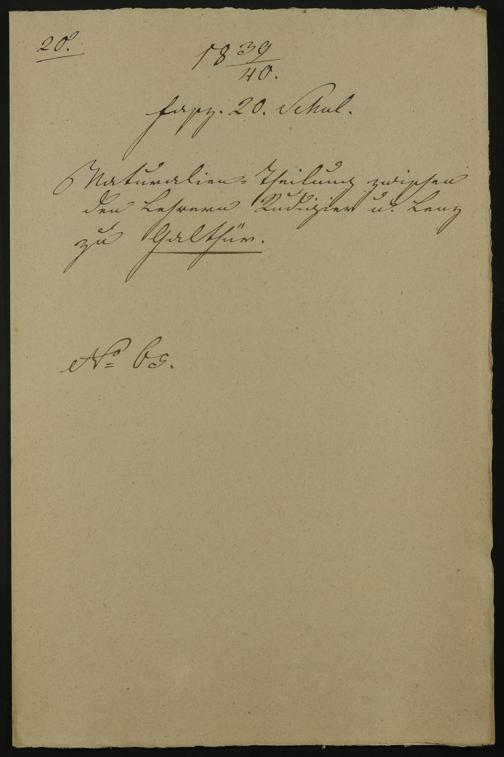 20.
18 39/40.
Fasz. 20. Schul.
Naturalien-Theilung zwischen
den Lehrern Rudigier u. Lenz
zu Galthür.
No 65.